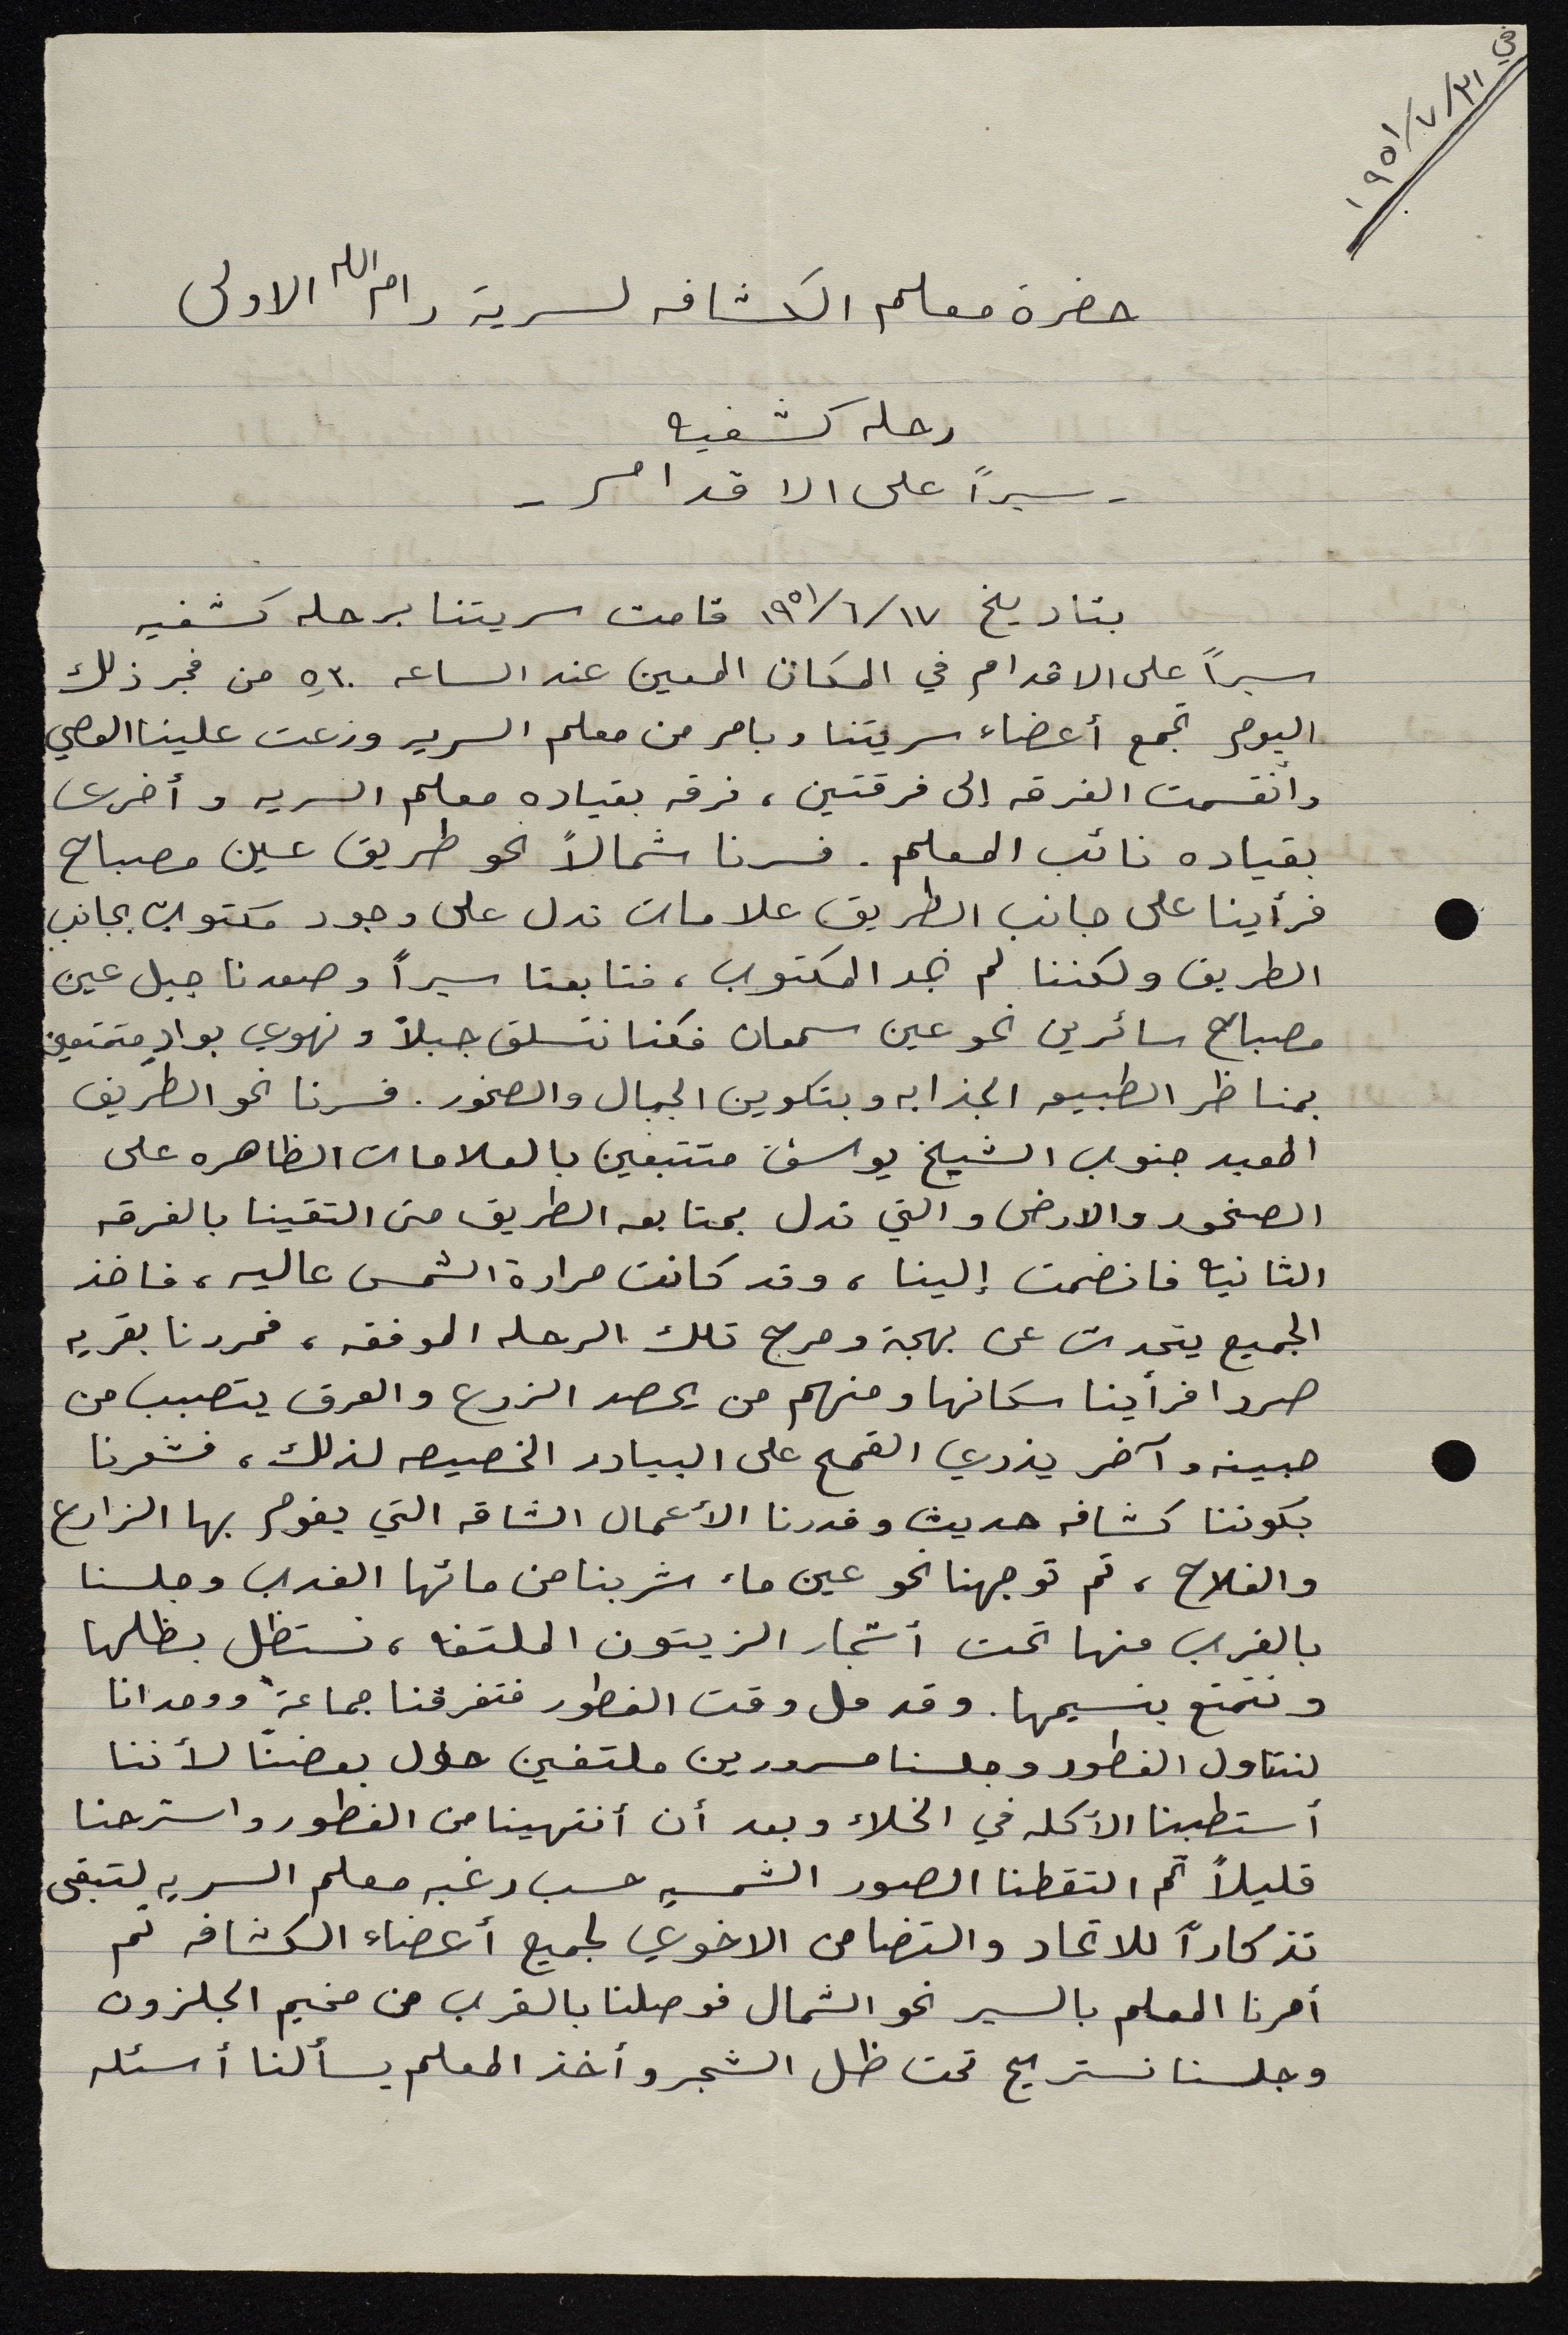 في ٢١/٧/١٩٥١
حضرة معلم الكشافه لسرية رام الله الاولى
رحله كشفيه
- سيراً على الاقدام -
بتاريخ ١٧/٦/١٩٥١ قامت سريتنا برحله كشفيه
سيراً على الاقدام في المكان المعين عند الساعه ٥,٣٠ من فجر ذلك
اليوم تجمع أعضاء سريتنا وبامر من معلم السريه وزعت علينا العصي
وأنقسمت الفرقه إلى فرقتين، فرقه بقياده معلم السريه وأخرى
بقياده نائب المعلم. فسرنا شمالاً نحو طريق عين مصباح
فرأينا على جانب الطريق علامات تدل على وجود مكتوب بجانب
الطريق ولكننا لم نجد المكتوب، فتابعنا سيراً وصعدنا جبل عين
مصباح سائرين نحو عين سمعان فكنا نتسلق جبلاً ونهوي بوادٍ متمتعين
بمناظر الطبيعه الجذابه وبتكوين الجبال والصخور. فسرنا نحو الطريق
المعبد جنوب الشيخ يوسف متتبعين بالعلامات الظاهره على
الصخور والارض والتي تدل بمتابعه الطريق حتى التقينا بالفرقه
الثانيه فانضمت إلينا، وقد كانت حرارة الشمس عاليه، فاخذ
الجميع يتحدث عن بهجة ومرح تلك الرحله الموفقه، فمررنا بقريه
صردا فرأينا سكانها ومنهم من يحصد الزرع والعرق يتصبب من
جبينه وآخر يذري القمح على البيادر الخصيصه لذلك، فشعرنا
بكوننا كشافه حديث وقدرنا الأعمال الشاقه التي يقوم بها الزارع
والفلاح، ثم توجهنا نحو عين ماء شربنا من مائها العذب وجلسنا
بالقرب منها تحت أشجار الزيتون الملتفه، نستظل بظلها
ونتمتع بنسيمها. وقد حل وقت الفطور فتفرقنا جماعةً ووحدانا
لنتناول الفطور وجلسنا مسرورين ملتفين حول بعضنا لأننا
أستطبنا الأكله في الخلاء وبعد أن أنتهينا من الفطور واسترحنا
قليلاً ثم التقطنا الصور الشمسيه حسب رغبه معلم السريه لتبقى
تذكاراً للاتحاد والتضامن الاخوي لجميع أعضاء الكشافه ثم
أمرنا المعلم بالسير نحو الشمال فوصلنا بالقرب من مخيم الجلزون
وجلسنا نستريح تحت ظل الشجر وأخذ المعلم يسألنا أسئله